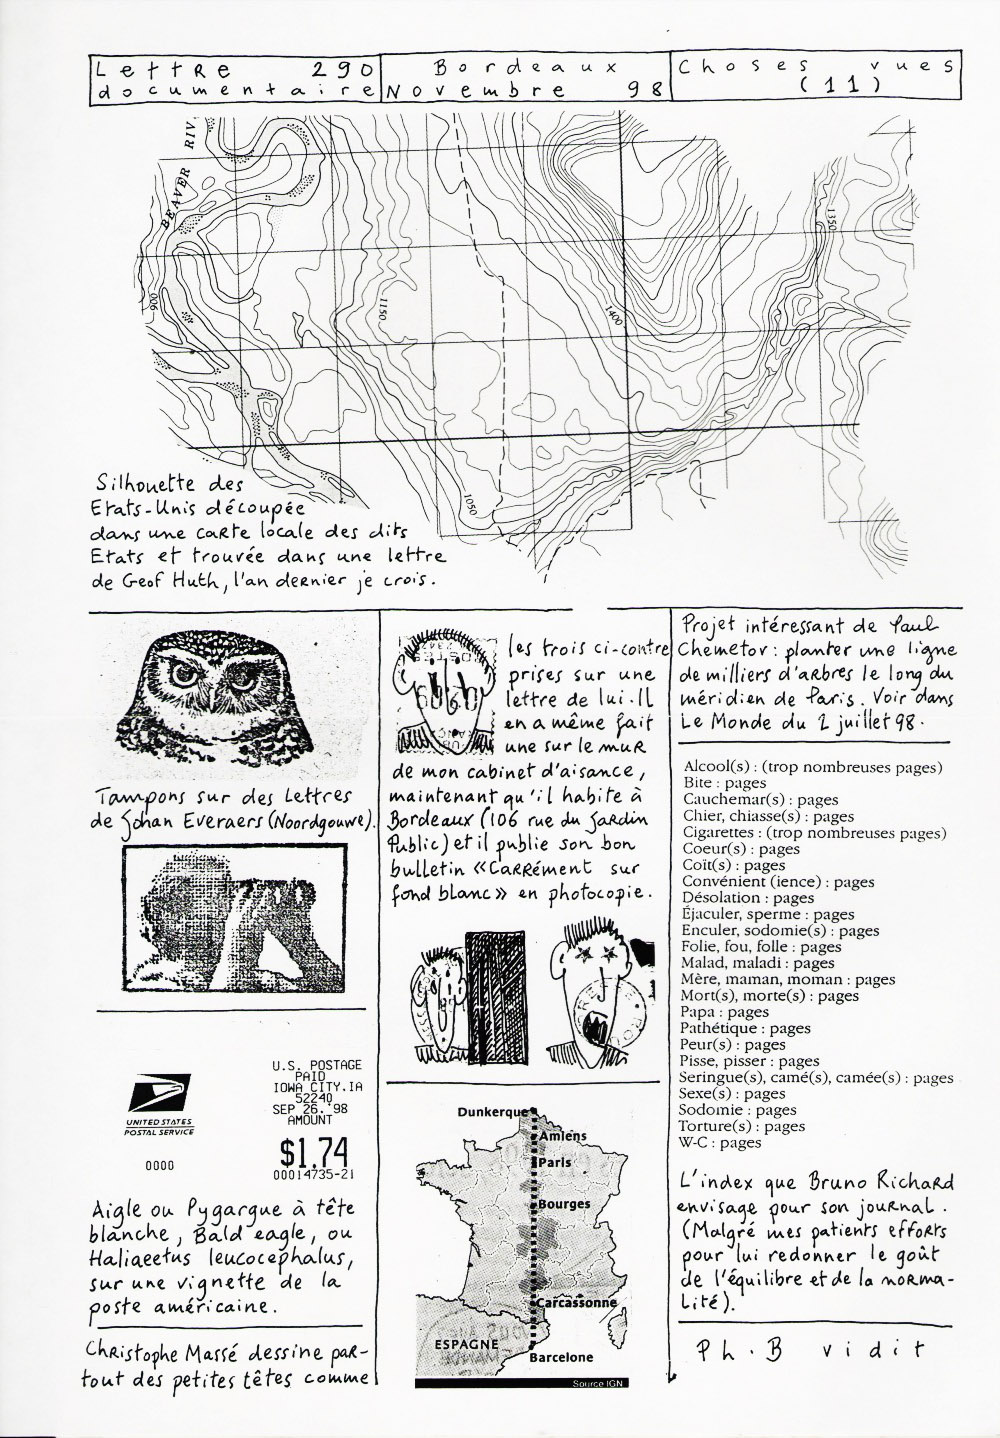 Lettre 290
documentaire
Bordeaux
Novembre 98
Choses vues
(11)
BEAVER RIV.
900
1150
1400
1350
1050
Silhouette des
Etats-Unis découpée
dans une carte locale des dits
Etats et trouvée dans une lettre
de Geof Huth, l'an dernier je crois.
Tampons sur des lettres
de Johan Everaers (Noordgouwe).
UNITED STATES
POSTAL SERVICE
0000
U.S. POSTAGE
PAID
IOWA CITY.IA
52240
SEP 26.'98
AMOUNT
$1.74
00014735-21
Aigle ou Pygargue à tête
blanche, Bald eagle, ou
Haliaeetus leucocephalus,
sur une vignette de la
poste américaine.
Christophe Massé dessine par-
tout des petites têtes comme
les trois ci-contre
prises sur une
lettre de lui. Il
en a même fait
une sur le mur
de mon cabinet d'aisance,
maintenant qu'il habite à
Bordeaux (106 rue du Jardin
Public) et il publie son bon
bulletin «Carrément sur
fond blanc» en photocopie.
Dunkerque
Amiens
Paris
Bourges
Carcassonne
ESPAGNE
Barcelone
Source IGN
Projet intéressant de Paul
Chemetov : planter une ligne
de milliers d'arbres le long du
méridien de Paris. Voir dans
Le Monde du 2 juillet 98.
Alcool(s) : (trop nombreuses pages)
Bite : pages
Cauchemar(s) : pages
Chier, chiasse(s) : pages
Cigarettes : (trop nombreuses pages)
Coeur(s) : pages
Coït(s) : pages
Convénient (ience) : pages
Désolation : pages
Éjaculer, sperme : pages
Enculer, sodomie(s) : pages
Folie, fou, folle : pages
Malad, maladi : pages
Mère, maman, moman : pages
Mort(s), morte(s) : pages
Papa : pages
Pathétique : pages
Peur(s) : pages
Pisse, pisser : pages
Seringue(s), camé(s), camée(s) : pages
Sexe(s) : pages
Sodomie : pages
Torture(s) : pages
W-C : pages
L'index que Bruno Richard
envisage pour son journal.
(Malgré mes patients efforts
pour lui redonner le goût
de l'équilibre et de la norma-
lité).
Ph. B vidit